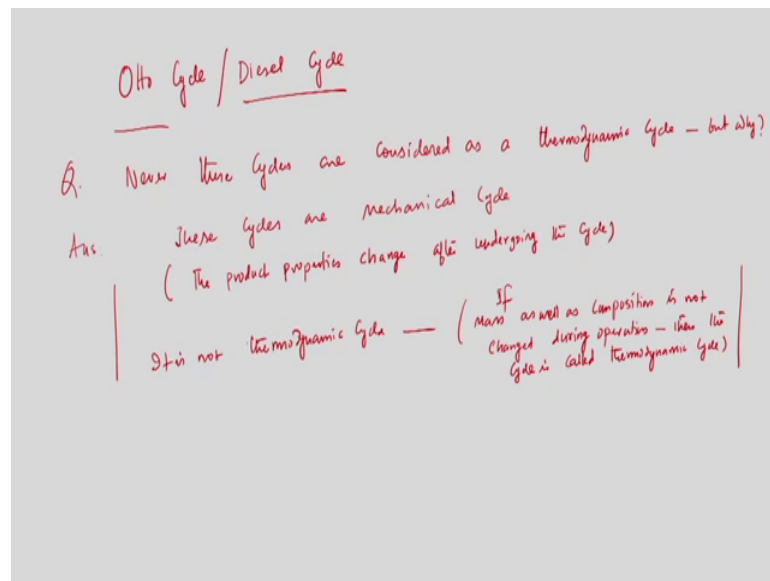 Otto Cycle / Diesel Cycle
Q. Never these Cycles are considered as a thermodynamic Cycle – but why?
Ans. These Cycles are mechanical Cycle
( The product properties change after undergoing the Cycle)
It is not thermodynamic Cycle — ( If
mass as well as composition is not
changed during operation – then the
Cycle is called thermodynamic Cycle)